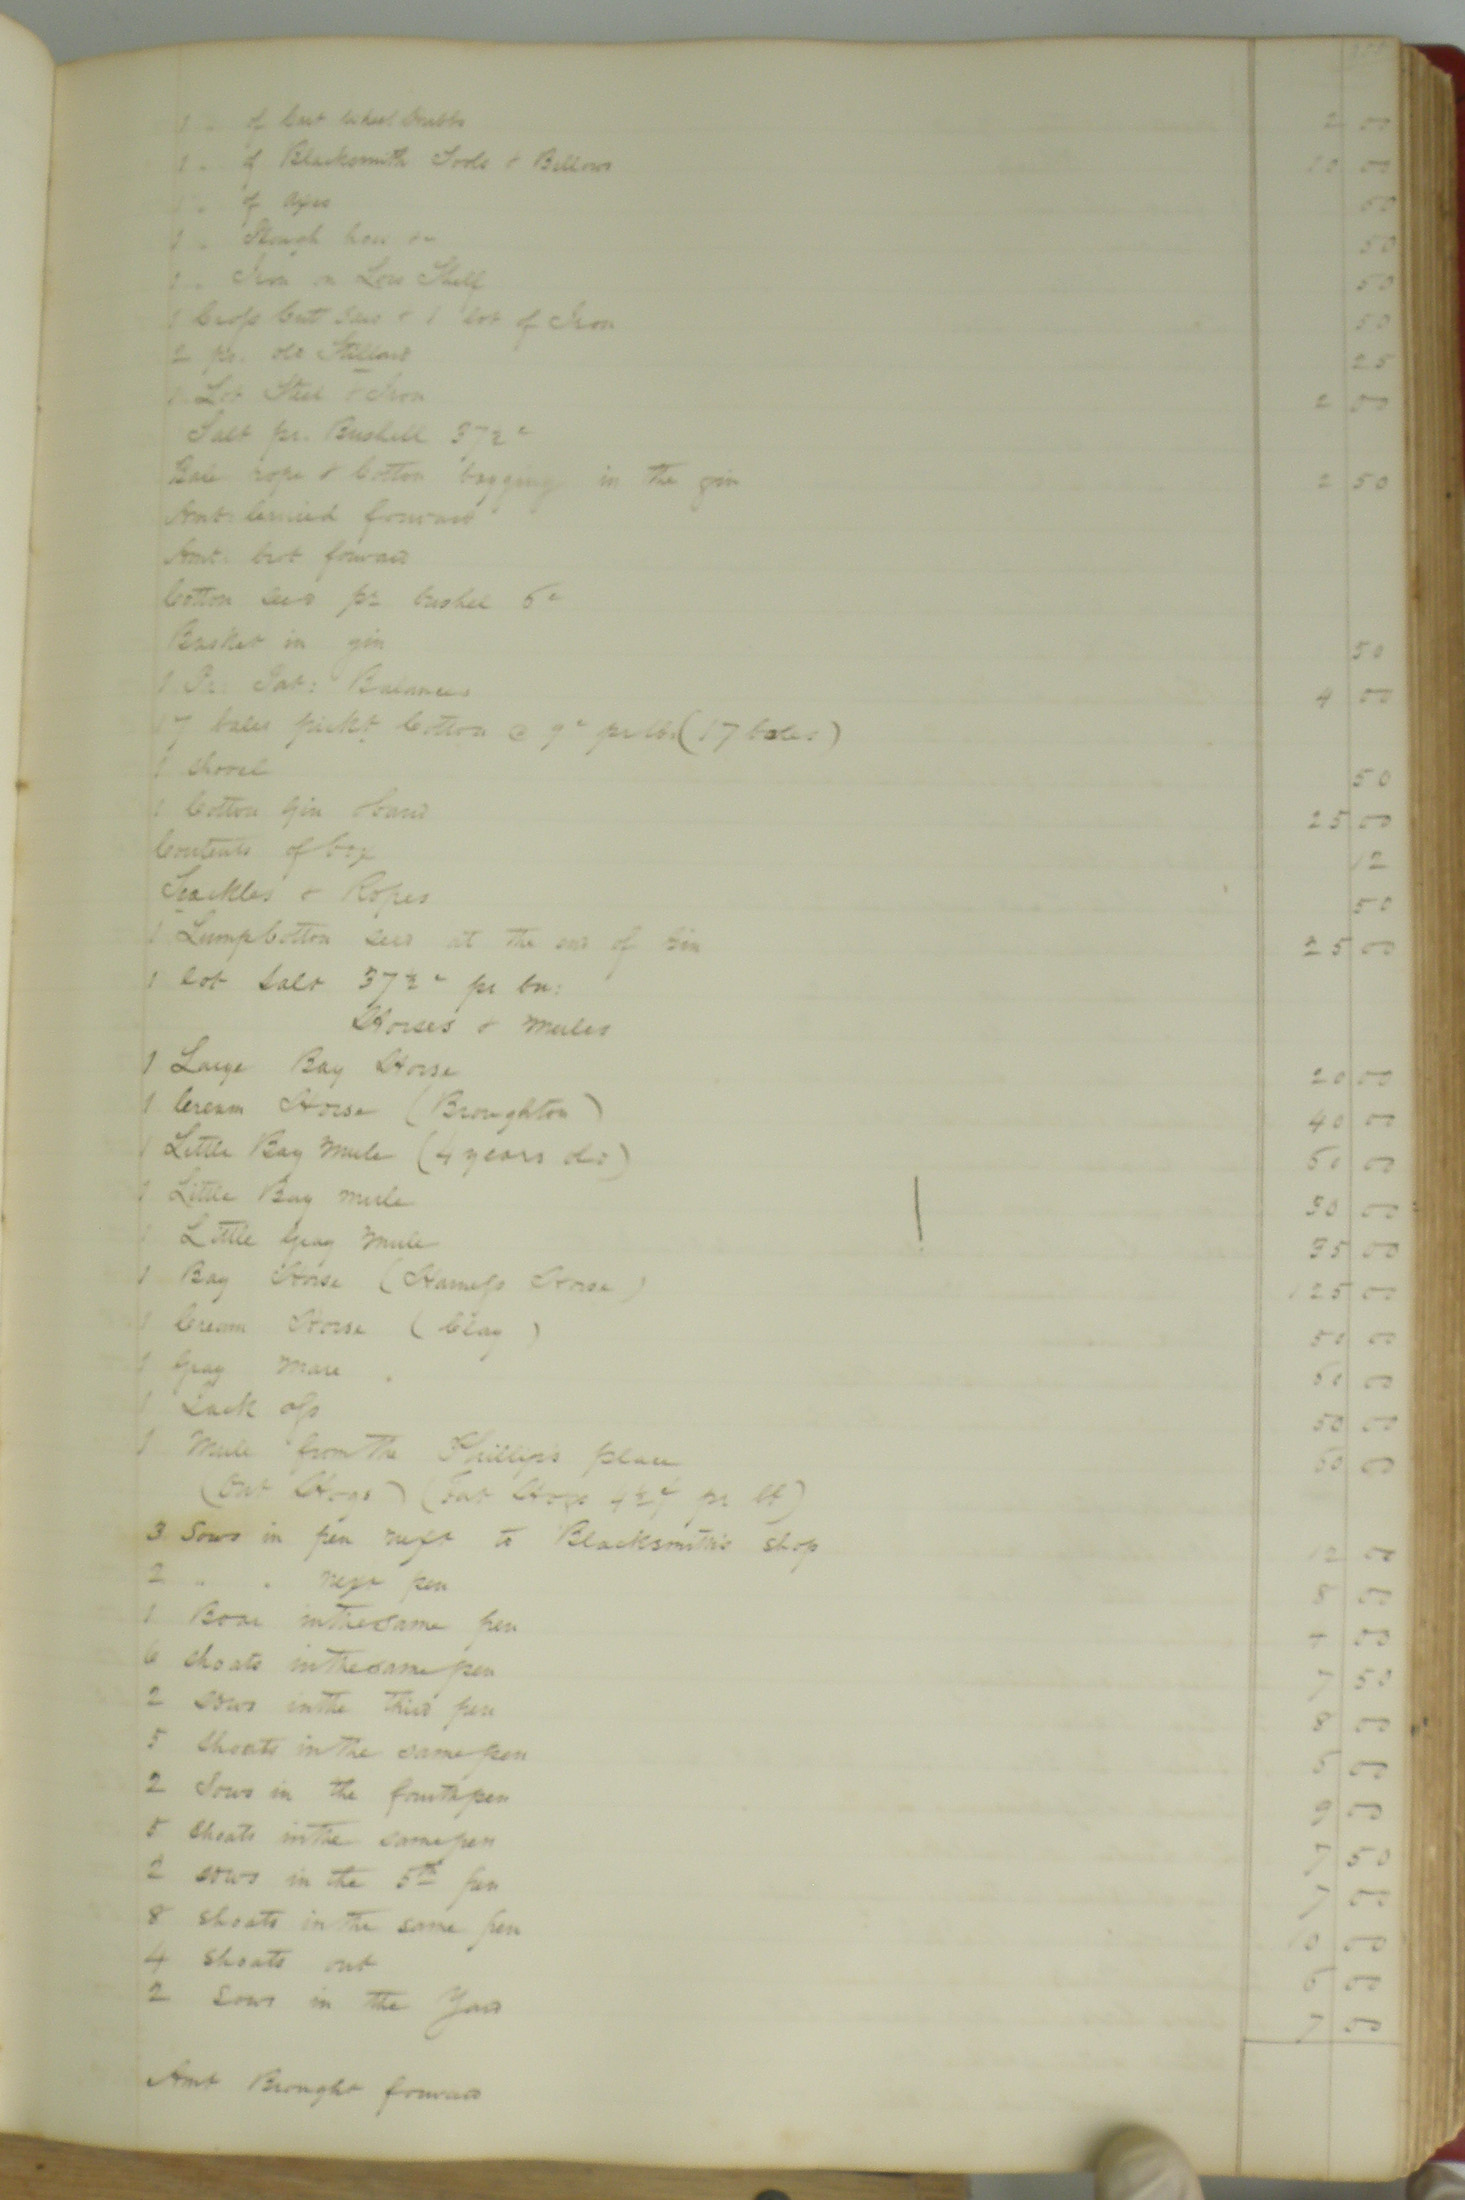 1 " of Cart wheel Hubbs 2 00
1 " of Blacksmith Tools & Bellows 10 00
1 " of Axes 50
1 " Plough hoes &c 50
1 " Iron on Low Shelf 50
1 Cross Cutt Saw & 1 lot of Iron 50
2 pr. old Stillards 25
1 Lot Steel & Iron 2 00
Salt pr. Bushell 37½ c
Bale rope & Cotton bagging in the gin 2 50
Amt. Carried forward
Amt. brot forward
Cotton seed pr bushel 6 c
Basket in gin 50
1 Pr. Pat: Balances 4 00
17 bales pickd Cotton @ 9 c pr lb. (17 bales)
1 Shovel 50
1 Cotton Gin & band 25 00
Contents of box 12
Tackles & Ropes 50
1 Lump Cotton seed at the end of Gin 25 00
1 lot Salt 37½ c pr bu:
Horses & Mules
1 Large Bay Horse 20 00
1 Cream Horse (Broughton) 40 00
1 Little Bay Mule (4 years old) 60 00
1 Little Bay Mule 30 00
1 Little Gray Mule 35 00
1 Bay Horse (Harness Horse) 125 00
1 Cream Horse (Clay) 50 00
1 Gray Mare 60 00
1 Jack ass 50 00
1 Mule from the Phillips place 60 00
(Out Hogs) (Fat Hogs 4½ c pr lb)
3 Sows in pen next to Blacksmith's shop 12 00
2 " " next pen 8 00
1 Boar in the same pen 4 00
6 Shoats in the same pen 7 50
2 Sows in the third pen 8 00
5 Shoats in the same pen 5 00
2 Sows in the fourth pen 9 00
5 Shoats in the same pen 7 50
2 Sows in the 5th pen 7 00
8 Shoats in the same pen 10 00
4 Shoats out 6 00
2 Sows in the Yard 7 00
Amt Brought forward